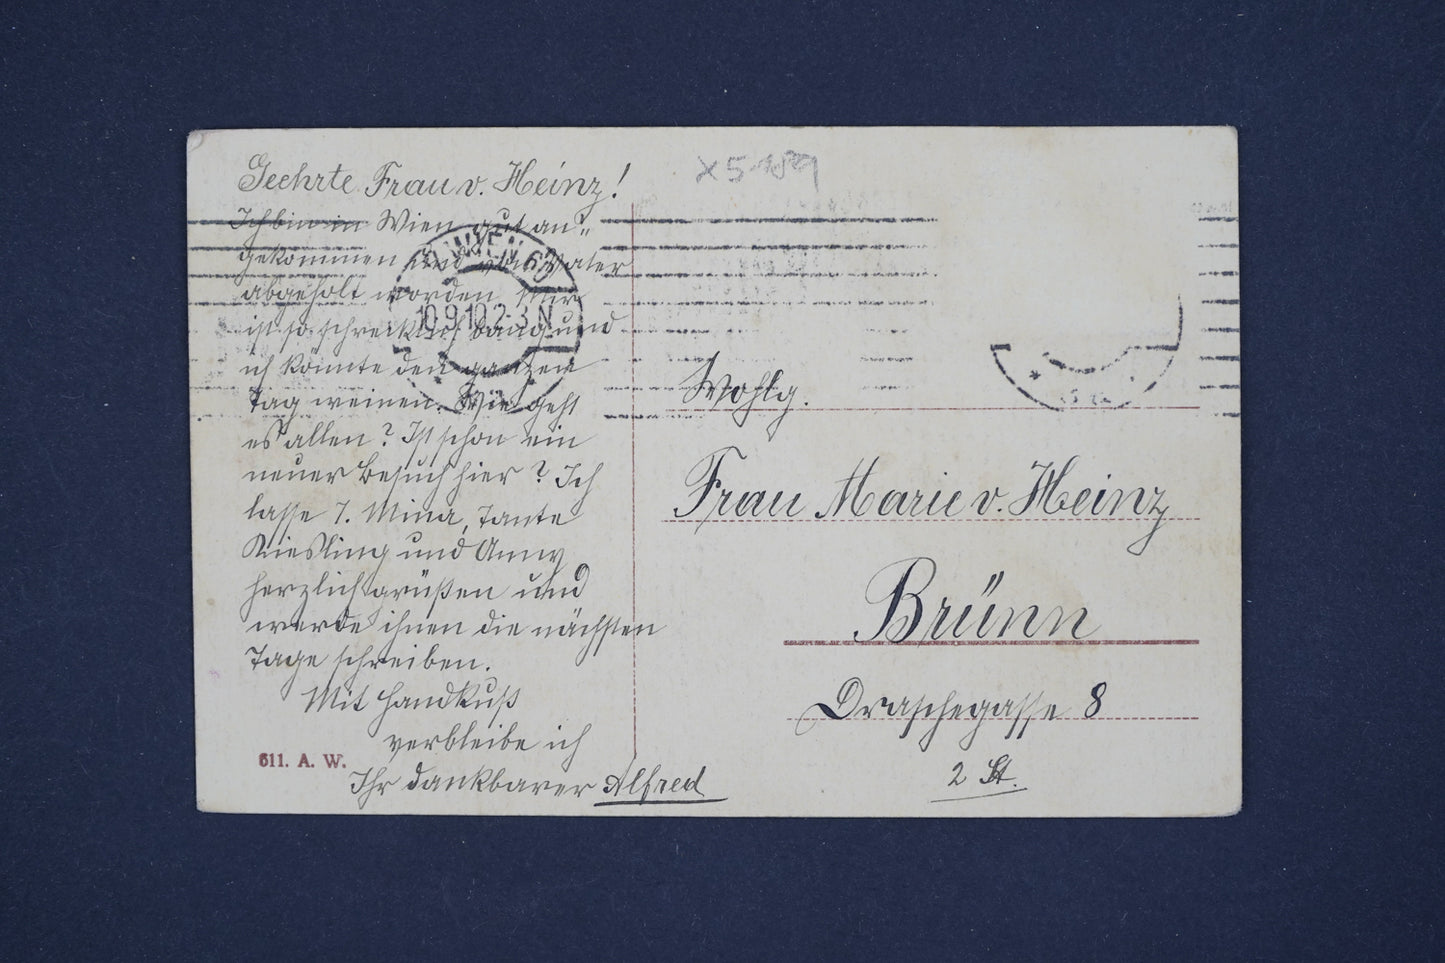 Geehrte Frau v. Heinz!
Ich bin in Wien gut an„
gekommen und vom Vater
abgeholt worden. Mir
ist so schrecklich bang und
ich könnte den ganzen
Tag weinen. Wie geht
es allen? Ist schon ein
neuer Besuch hier? Ich
lasse T. Mina, Tante
Riesling und Anny
herzlich grüßen und
werde ihnen die nächsten
Tage schreiben.
Mit Handkuß
verbleibe ich
Ihr dankbarer Alfred
611. A. W.
WIEN 62
10.9.10 2-3 N
X5-189
Wohlg.
Frau Marie v. Heinz
Brünn
Draschegasse 8
2 St.